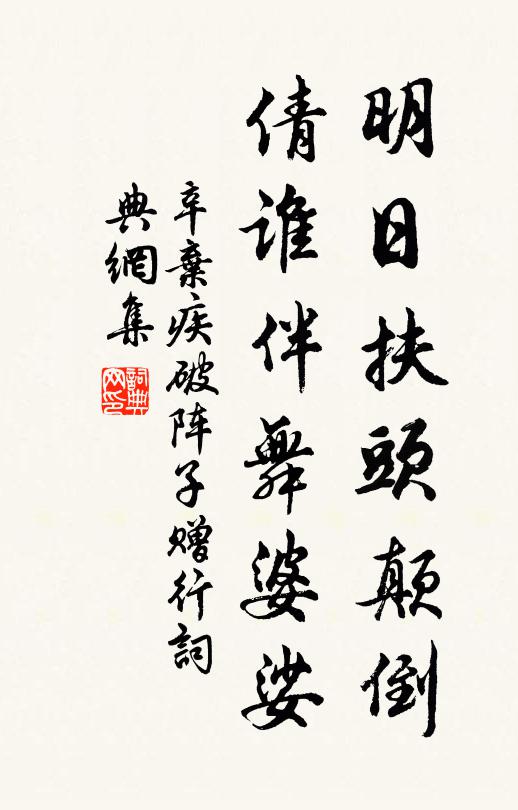 明日扶頭颠倒
倩誰伴舞婆娑
辛棄疾破阵子赠行詞
典網集
詞典
网印